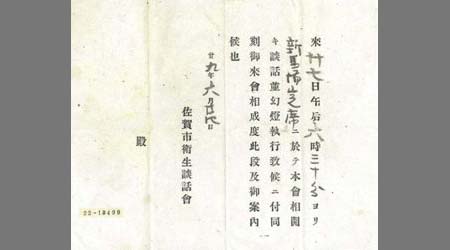 來廿七日午后六時三十分ヨリ
新馬場山芝席ニ於テ本會相開
キ談話並幻燈執行致候ニ付同
刻御來會相成度此段及御案内
候也
廿九年六月日
佐賀市衛生談話會
殿
22-18499